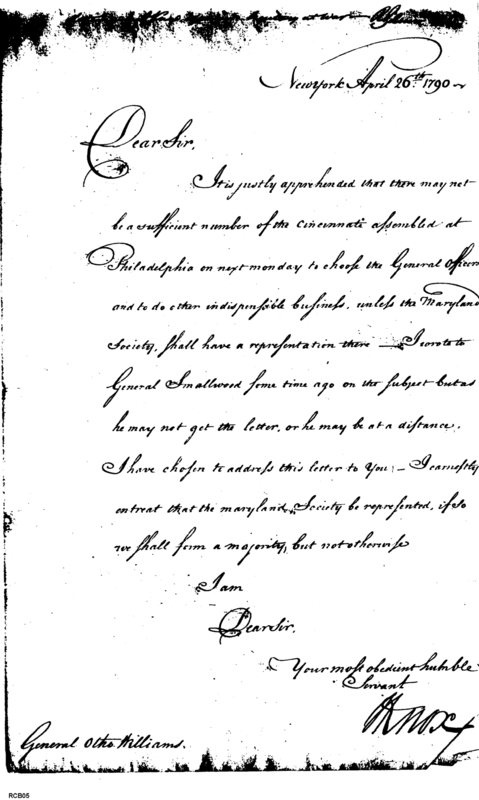 New York April 26.th 1790
Dear Sir,
It is justly apprehended that there may not
be a sufficient number of the Cincinnati assembled at
Philadelphia on next monday to choose the General Officers
and to do other indispensible business, unless the Maryland
Society, shall have a representation there — I wrote to
General Smallwood some time ago on the subject but as
he may not get the letter, or he may be at a distance,
I have chosen to address this letter to You; — I earnestly
entreat that the maryland Society be represented, if so
we shall form a majority, but not otherwise
I am
Dear Sir,
Your most obedient humble
Servant
HKnox
General Otho Williams.
RCB05